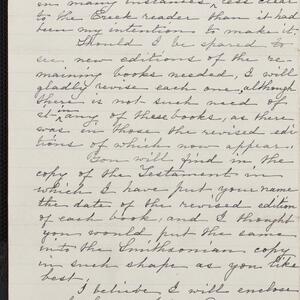 in many instances, less clear
to the Creek reader than it had
been my intention to make it.
Should I be spared to
see new editions of the re-
maining books needed, I will
gladly revise each one, although
there is not such need of
it in any of these books, as there
was in those the revised edi-
tions of which now appear.
You will find in the
copy of the Testament in
which I have put your name
the date of the revised edition
of each book, and I thought
you would put the same
into the Smithsonian copy
in such shape as you like
best.
I believe I will enclose